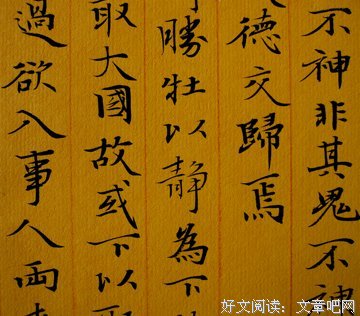 不神非其鬼不神
德交歸焉
勝牡以静為下
取大國故或下以取
過欲入事人兩
好文阅读：文章吧网